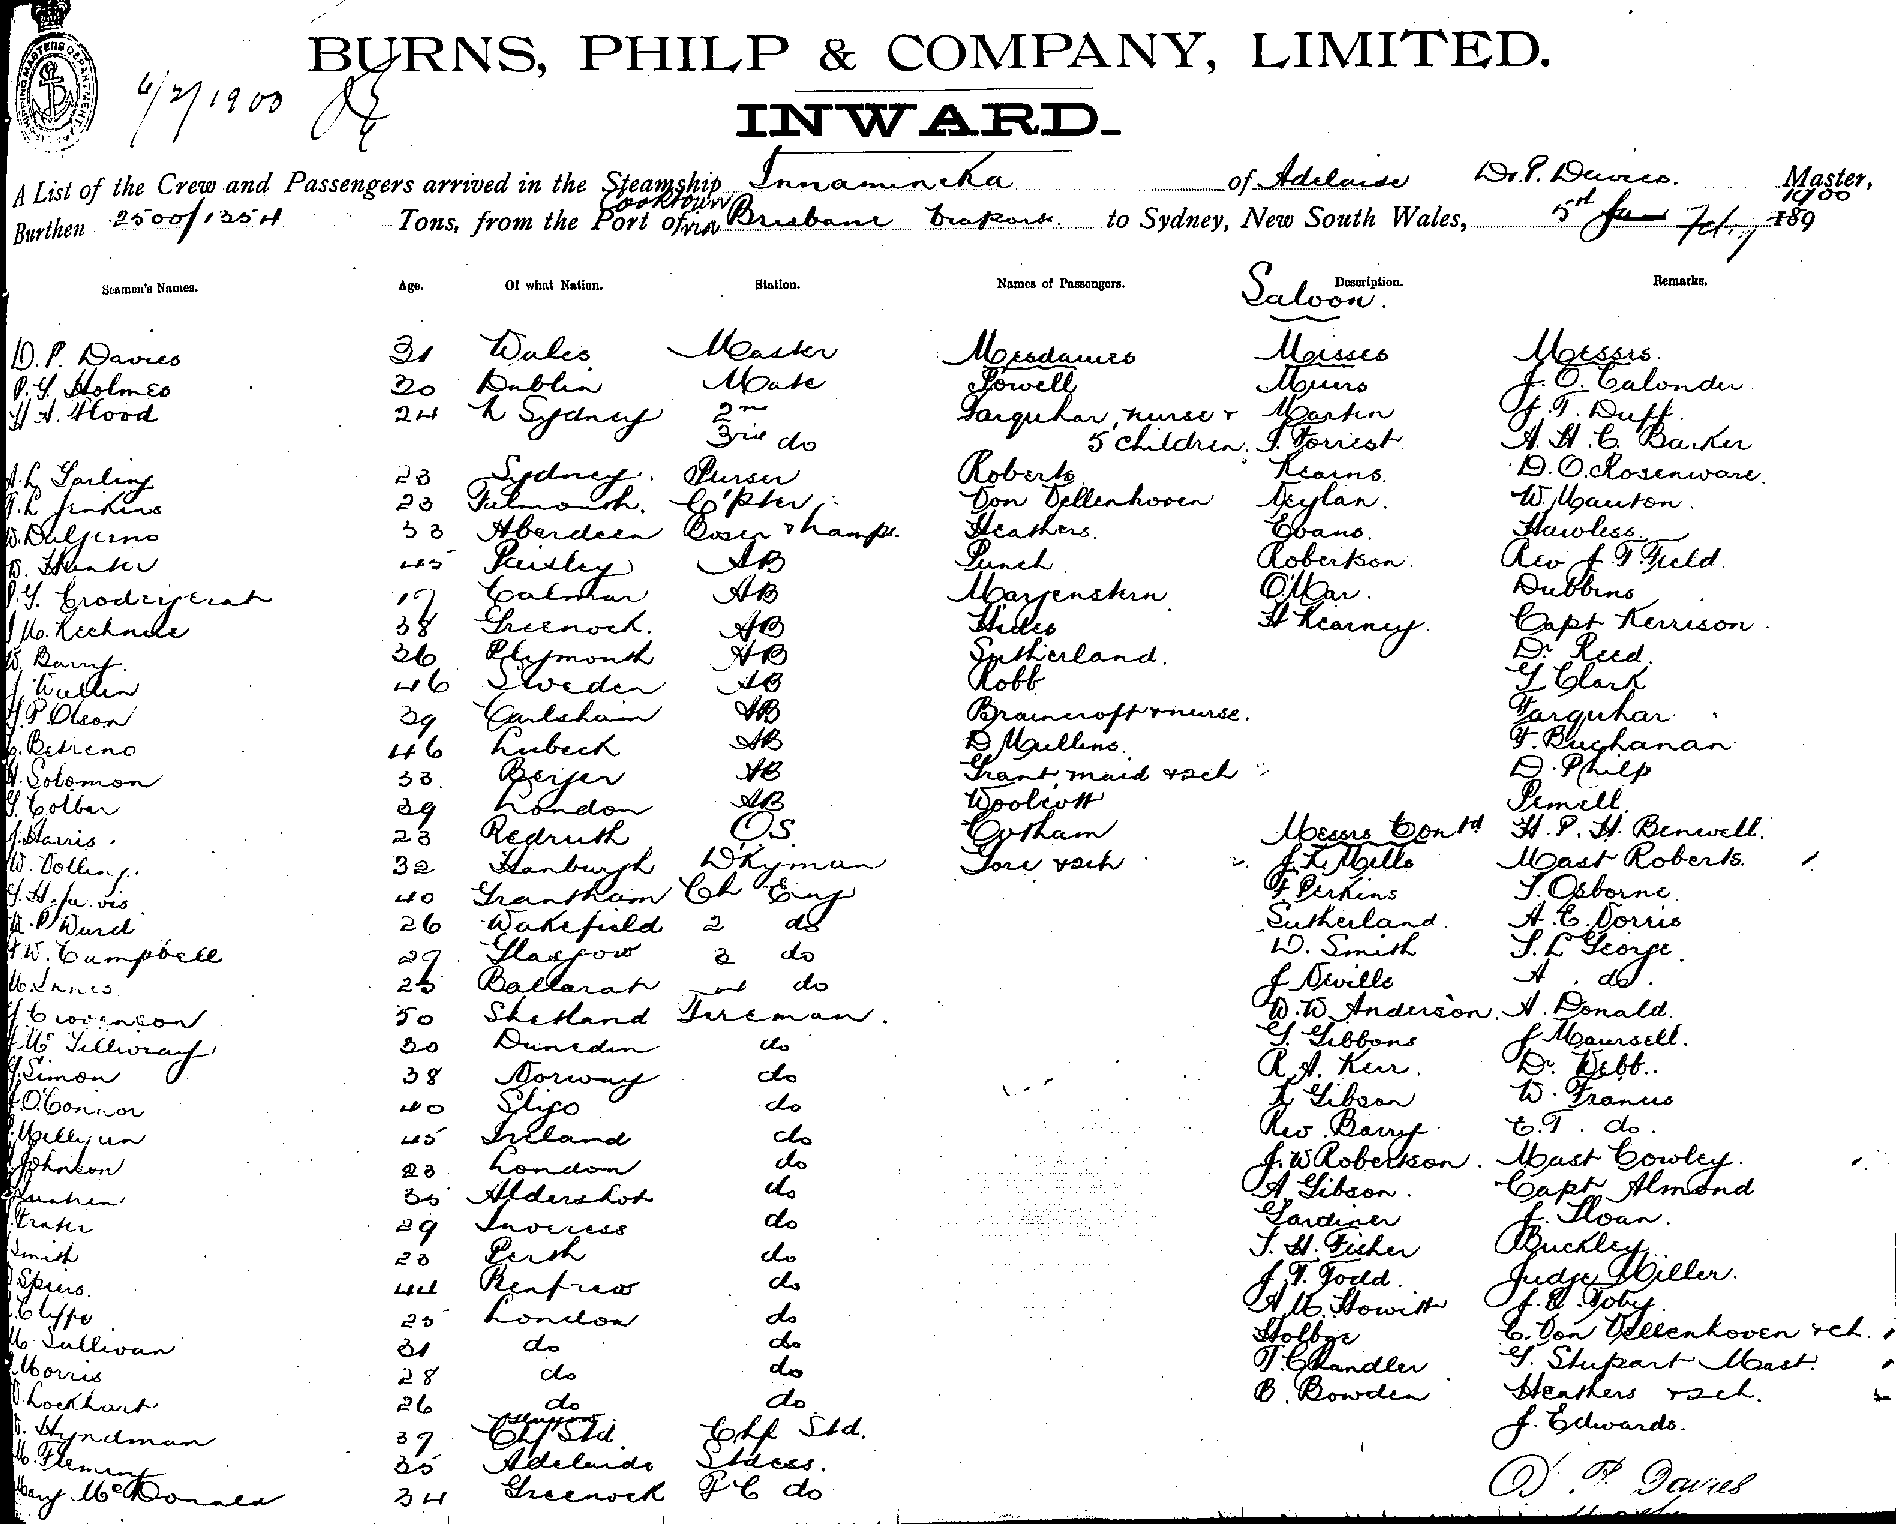 BURNS, PHILP & COMPANY, LIMITED.
6/2/1900
INWARD.
A List of the Crew and Passengers arrived in the Steamship Innamincka of Adelaide D. P. Davies. Master,
Cooktown 1900
Burthen 2500/1354 Tons, from the Port of via Brisbane to Sydney, New South Wales, 5th Jan Feby 189
Seamen's Names. Age. Of what Nation. Station. Names of Passengers. Description. Remarks.
Saloon.
D. P. Davies 31 Wales Master Mesdames Misses Messrs.
P. G. Holmes 30 Dublin Mate Powell Muirs J. O. Calonder
H A. Hood 24 N Sydney 2nd Farquhar, nurse & Martin J. T. Duff.
3rd do 5 children. F. Forrest A. H. C. Barker
A. L. Garling 23 Sydney. Purser Roberts Kearns. D. O. Rosenware.
T. L. Jenkins 23 Falmouth. C'pter Von Vellenhoven Neylan. W. Mauton.
W. Dalgerno 33 Aberdeen Bosen & Lamps. Heathers. Evans. Hawless.
D. Hunter 45 Paisley AB Punch Robertson. Rev J. T. Field.
P. G. 17 Calmar AB Morgenstern O'Mar. Dubbins
38 Greenock. AB Hides H Kearney. Capt Kerrison.
W. Barry. 36 Plymouth AB Sutherland. Dr Reed.
J. Wallin 46 Sweden AB Robb G Clark
H. P. Olson 39 Carlsham AB Braincroft & nurse. Farquhar
C. Betreno 46 Lubeck AB D Mullins. F. Buchanan
A. Solomon 33 AB Grant, maid & 2ch D. Philp
G. Colbar 39 London AB Woolcott Pemell.
J. Harris. 23 Redruth O.S. Cotham Messrs Contd H. P. H. Benwell.
W. Dolling. 32 Hamburgh Dkyman Gore & 2ch J. L. Mills Mast Roberts.
G. H. Jarvis 40 Grantham Ch Eng F Perkins S. Osborne.
A. P. Ward 26 Wakefield 2 do Sutherland. A. E. Norris
A. W. Campbell 29 Glasgow 3 do W. Smith S. L George.
M. Innes 25 Ballarat 4th do J Neville A. do.
50 Shetland Fireman. W. W. Anderson. A. Donald.
J McGillivray 30 Dunedin do G. Gibbons J Maunsell.
J. Simon 38 Norway do R. A. Kerr. Dr. Webb.
J. O'Connor 40 Sligo do K Gibson W. Francis
Milligan 45 Ireland do Rev. Barry C. T. do.
Johnson 23 London do J. W Robertson. Mast Cowley.
35 Aldershot do A. Gibson. Capt Almond
Fraser 29 Inverness do Gardiner J. Sloan.
Smith 23 Perth do S. H. Fisher Buckley
Spiers. 44 Renfrew do J. T. Todd. Judge Miller.
Cliffe 25 London do A M. Howitt J. R. Toby.
M. Sullivan 31 do do Holbge C. Von Vellenhoven & ch.
Morris 28 do do T. Chandler G. Stupart Mast.
Lockhart 26 do do. B. Bowden Heathers & 2ch.
J. Edwards.
Hyndman 37 Chf Std. Chf Std.
M. Fleming 35 Adelaide Stdess.
Mary McDonald 34 Greenock F C do
D. P. Davies